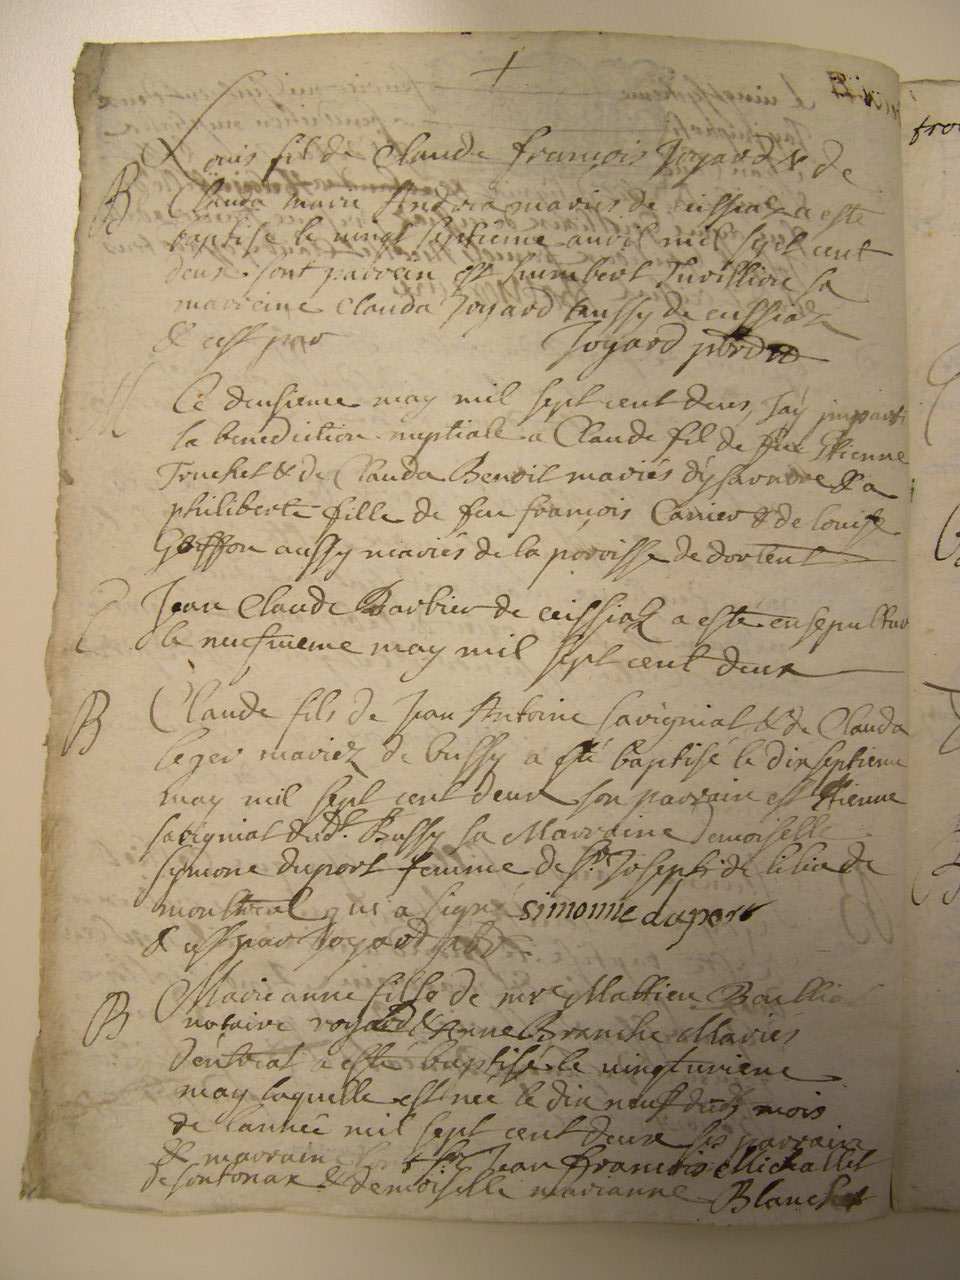 B Louis fil de Claude françois Joyard & de
Clauda marie Andréa mariés de cessiaz a esté
baptise le vingt septieme avril mil sept cent
deux sont parrein est humbert Juilliere sa
marreine Clauda Joyard aussy de cessiaz
& est par Joyard pbr
M Le deusieme may mil sept cent deux, J'ay jmparti
la benediction nuptiale a Claude fil de feu Etienne
Truchet & de Clauda Benoit mariés d'ysarnore & a
philiberte fille de feu françois Carrier & de louise
Griffon aussy mariés de la paroisse de dortent
Jean Claude Barbier de ceissiaz a esté ensepulturé
le neufvieme may mil sept cent deux
B Claude fils de Jean Antoine savigniat & de Clauda
leger mariez de bussy a esté baptisé le dixseptieme
may mil sept cent deux son parrain est Etienne
savigniat dud. Bussy sa Marraine Demoiselle
symone duport femme de Sr. Joseph de lilia de
montreal qui a signé simonne duport
& est par Joyard pbr
B Marie anne fille de mre Mattieu Baillia
notaire royal & d'Anne Branche Mariés
d'entrat a esté baptisée le vingtunieme
may laquelle est née le dix neuf dudt mois
de l'année mil sept cent deux ses parrain
& marrain sr Jean françois Michallet
de sontonax & demoiselle marianne Blanchet